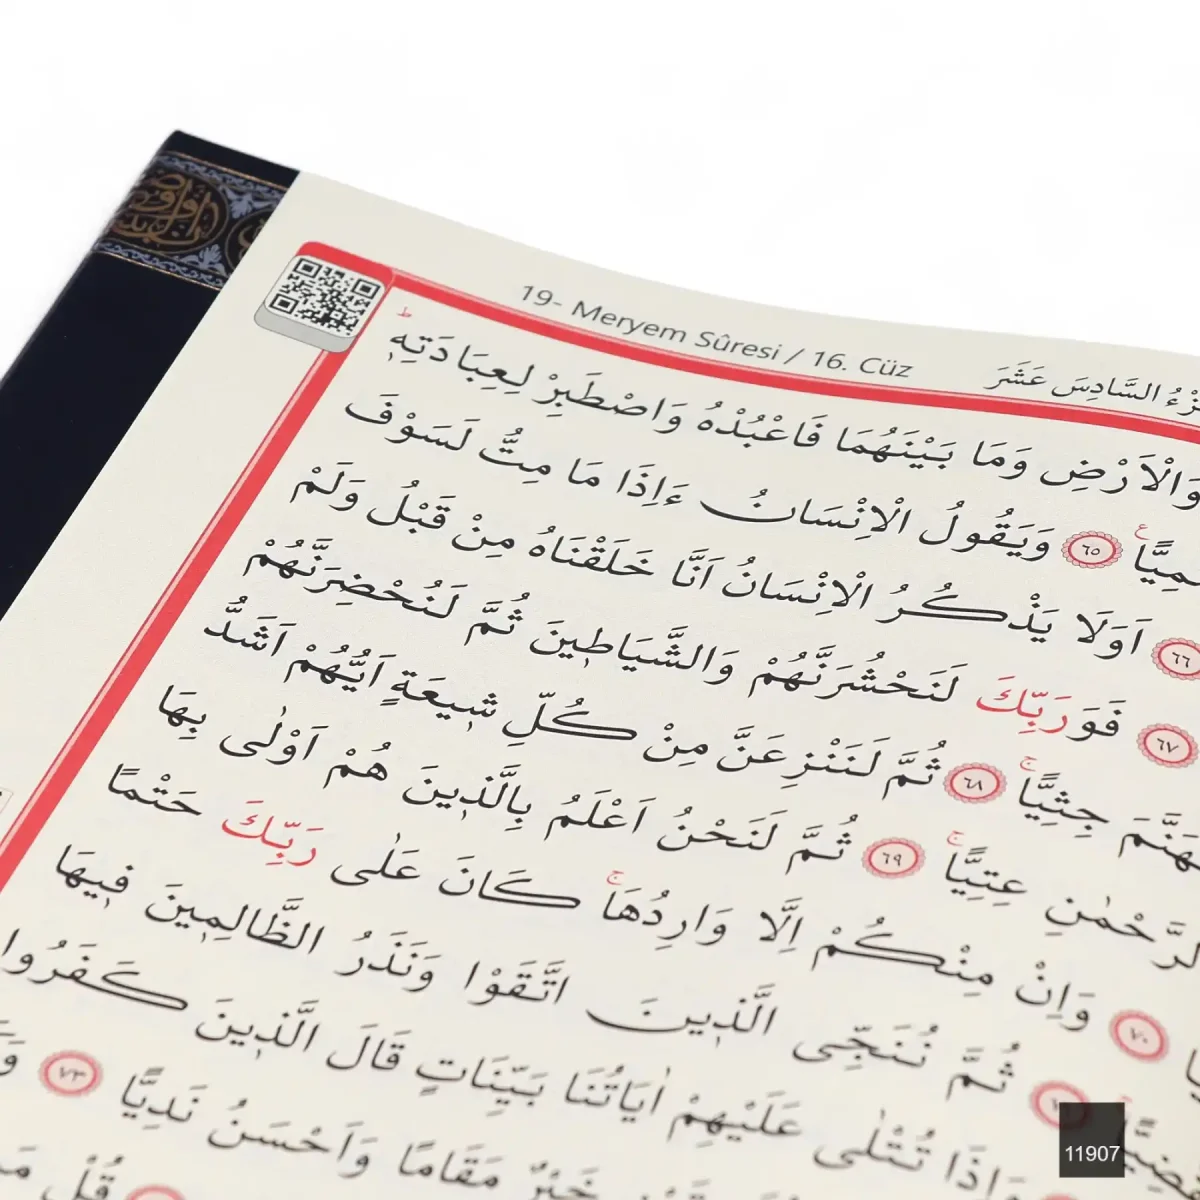 19- Meryem Sûresi / 16. Cüz
السَّادِسَ عَشَرَ
وَالْاَرْضِ وَمَا بَيْنَهُمَا فَاعْبُدْهُ وَاصْطَبِرْ لِعِبَادَتِهٖۜ
٦٥ وَيَقُولُ الْاِنْسَانُ ءَاِذَا مَا مِتُّ لَسَوْفَ
٦٦ اَوَلَا يَذْكُرُ الْاِنْسَانُ اَنَّا خَلَقْنَاهُ مِنْ قَبْلُ وَلَمْ
٦٧ فَوَرَبِّكَ لَنَحْشُرَنَّهُمْ وَالشَّيَاطٖينَ ثُمَّ لَنُحْضِرَنَّهُمْ
جِثِيًّاۚ ٦٨ ثُمَّ لَنَنْزِعَنَّ مِنْ كُلِّ شٖيعَةٍ اَيُّهُمْ اَشَدُّ
عِتِيًّاۚ ٦٩ ثُمَّ لَنَحْنُ اَعْلَمُ بِالَّذٖينَ هُمْ اَوْلٰى بِهَا
٧٠ وَاِنْ مِنْكُمْ اِلَّا وَارِدُهَاۚ كَانَ عَلٰى رَبِّكَ حَتْمًا
ثُمَّ نُنَجِّى الَّذٖينَ اتَّقَوْا وَنَذَرُ الظَّالِمٖينَ فٖيهَا
وَاِذَا تُتْلٰى عَلَيْهِمْ اٰيَاتُنَا بَيِّنَاتٍ قَالَ الَّذٖينَ كَفَرُوا
خَيْرٌ مَقَامًا وَاَحْسَنُ نَدِيًّا ٧٣
قُلْ
11907